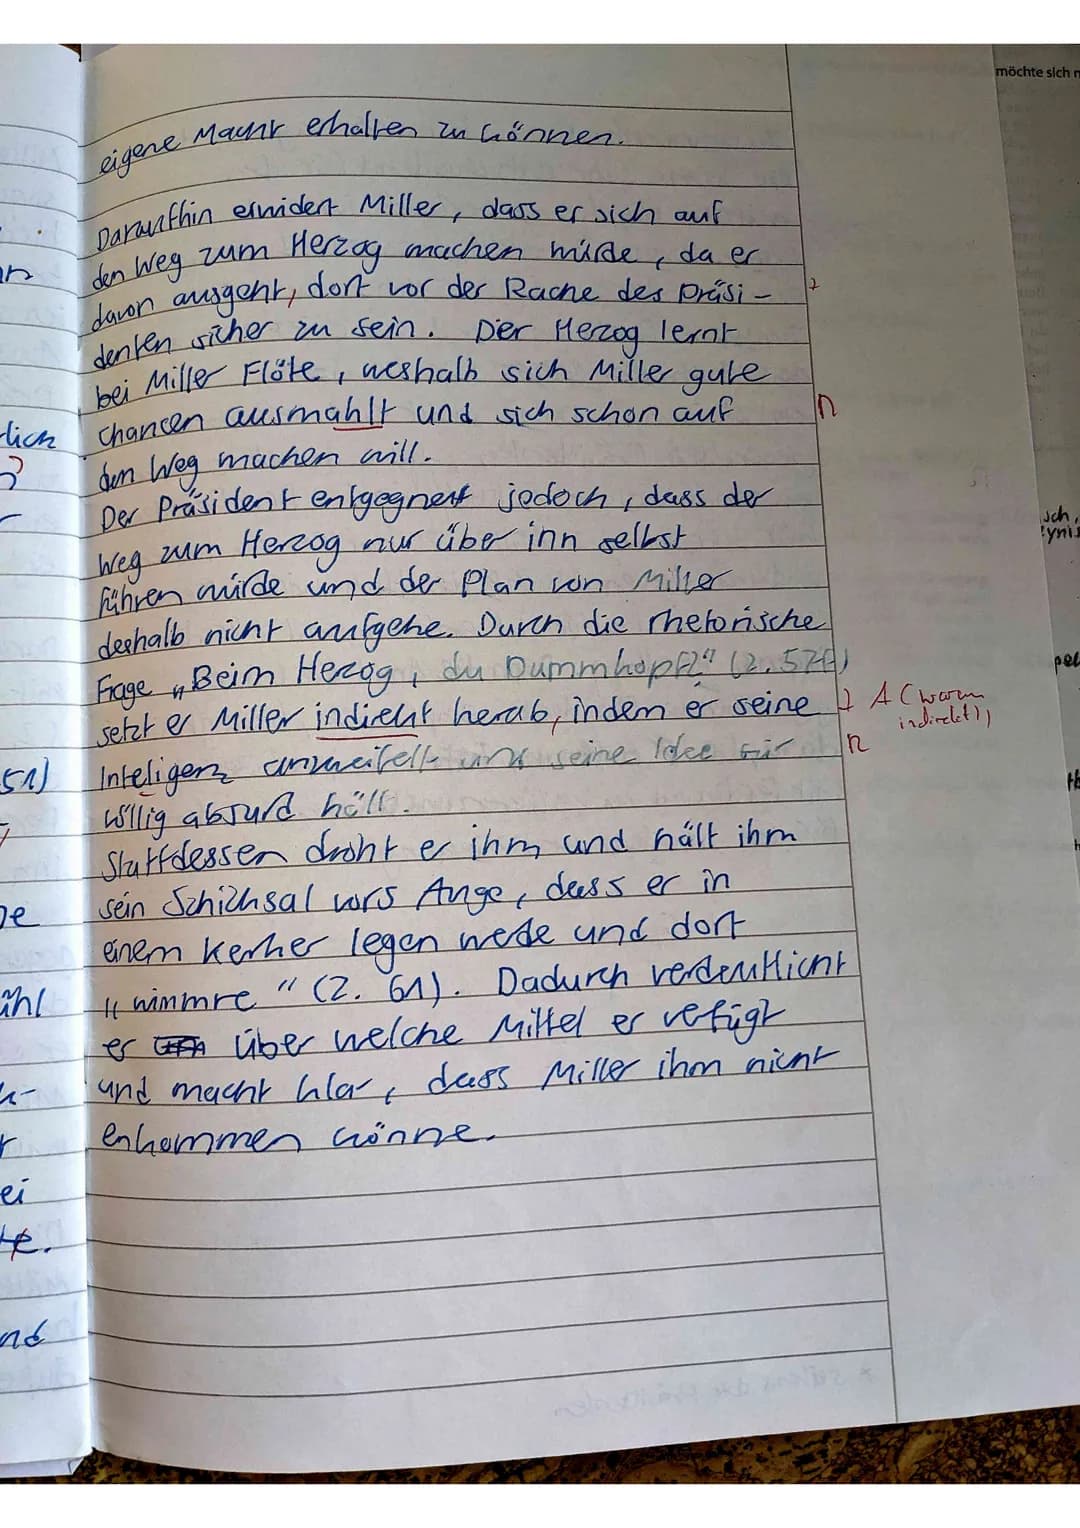 möchte sich
eigene Macht erhalten zu können.
Daraufhin erwidert Miller, dass er sich auf
den Weg zum Herzog machen würde, da er
davon ausgeht, dort vor der Rache des Präsi-
denten sicher zu sein. Der Herzog lernt
bei Miller Flöte, weshalb sich Miller gute
Chancen ausmahlt und sich schon auf
n
den Weg machen will.
Der Präsident entgegnet jedoch, dass der
Weg zum Herzog nur über inn selbst
führen würde und der Plan von Miller
deshalb nicht aufgehe. Durch die rhetorische
Frage „Beim Herzog, du Dummkopf?" (Z. 57f)
setzt er Miller indirekt herab, indem er seine
A (warum
indirekt)
Inteligenz anzweifelt und seine Idee für
völlig absurd hält.
Stattdessen droht er ihm und hält ihm
sein Schicksal vors Auge, dass er in
einem Kerker legen werde und dort
„wimmre" (Z. 61). Dadurch verdeutlicht
er über welche Mittel er verfügt
und macht klar, dass Miller ihm nicht
enkommen könne.
51)
lich
ühl
ei
te.
nd